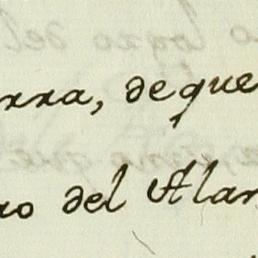 rra, de que
ro del Alar